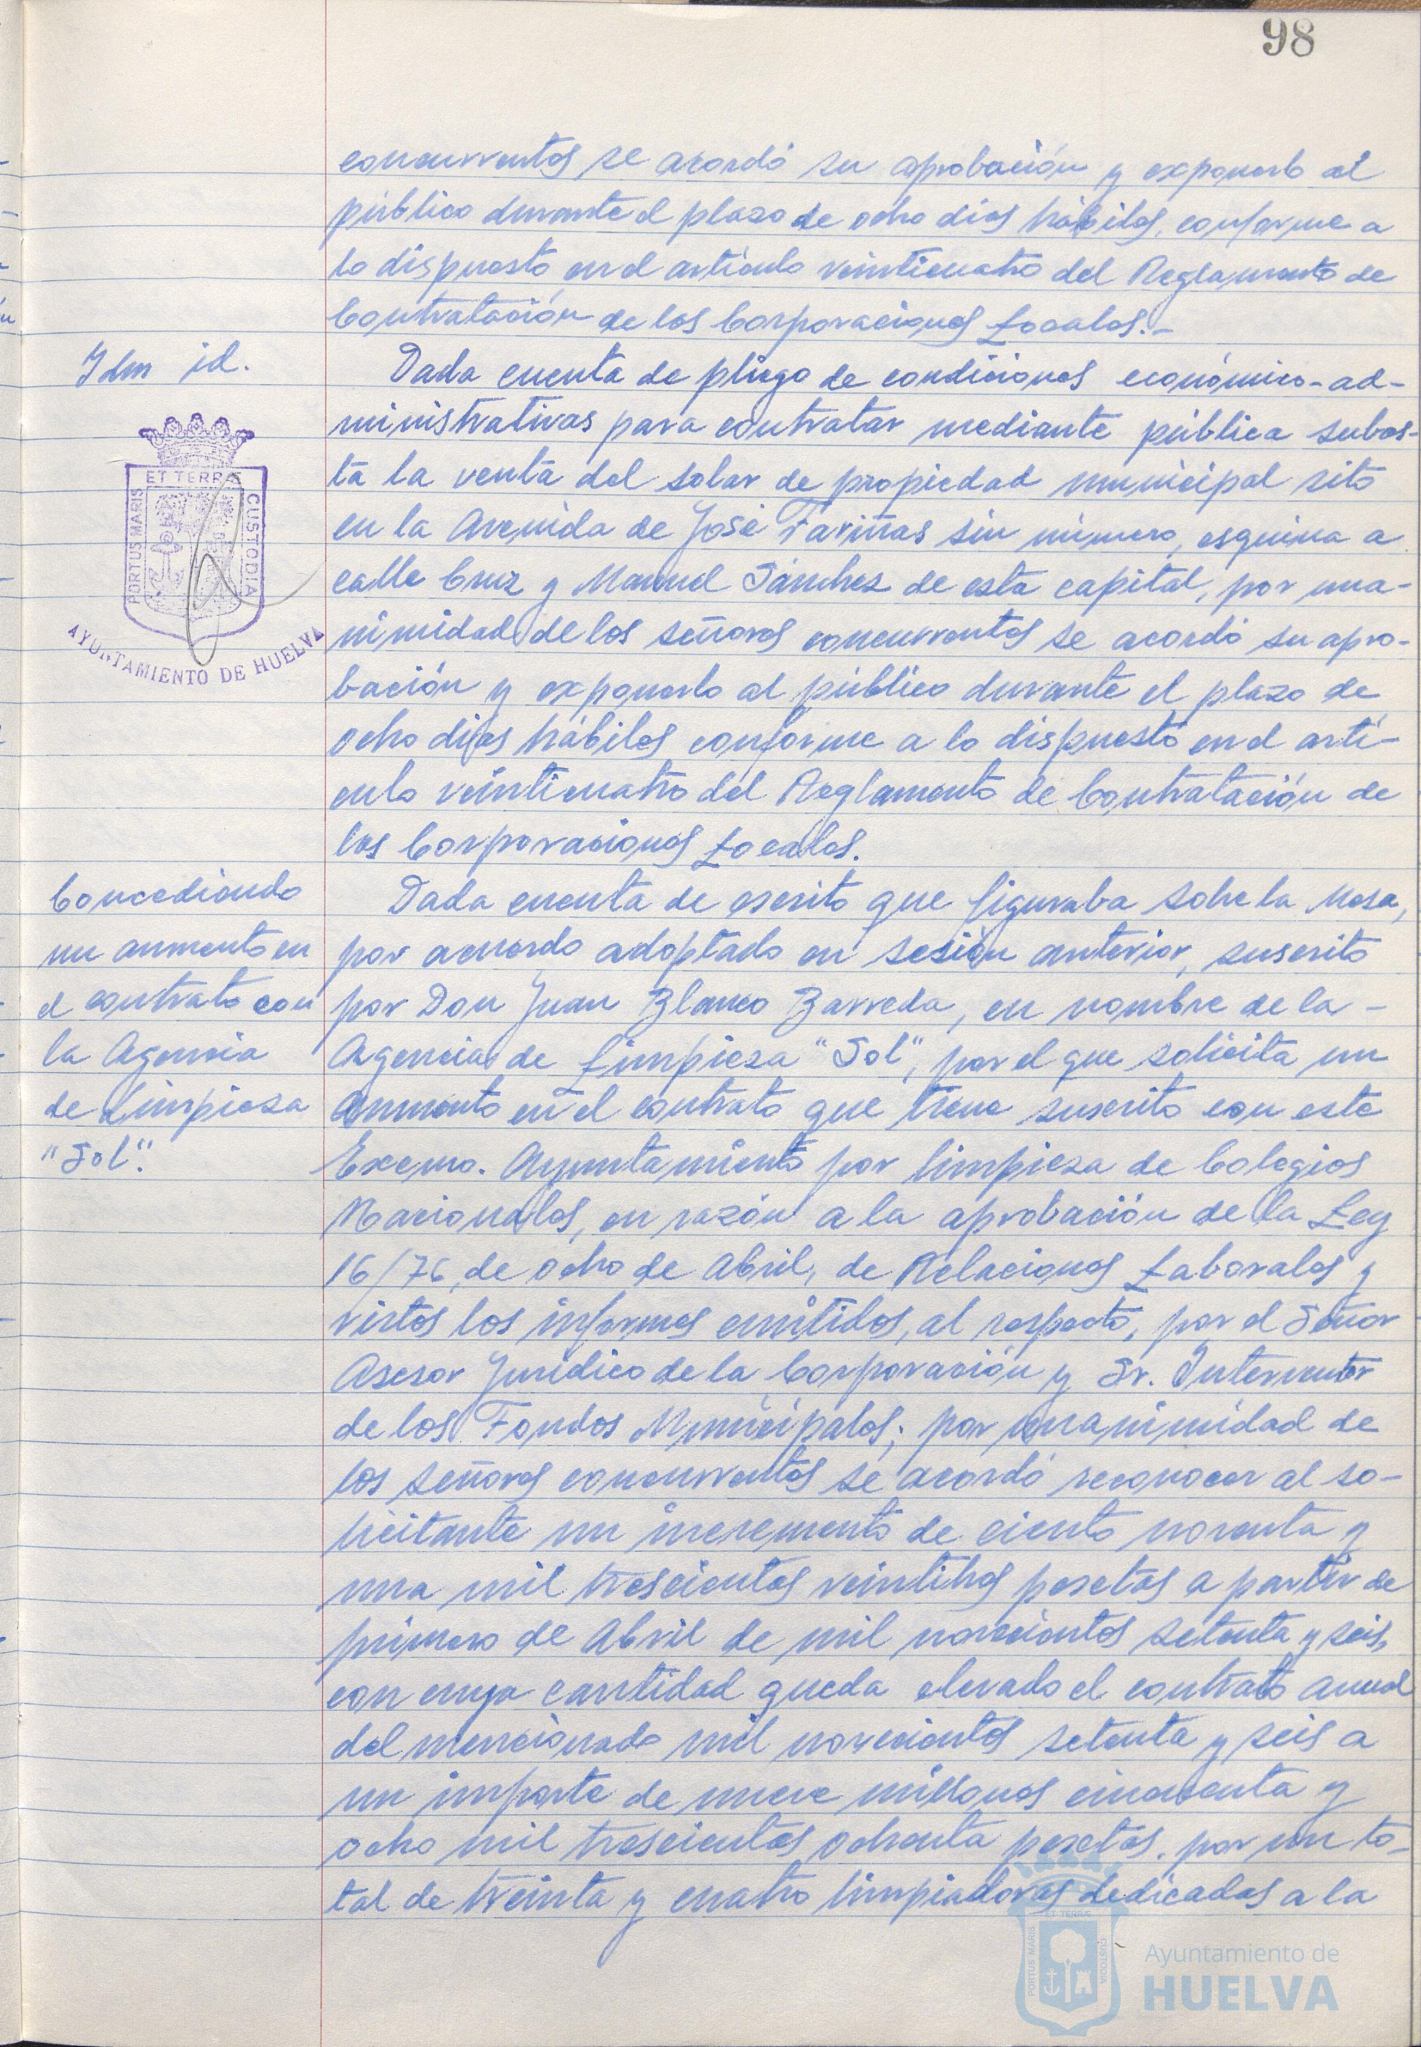 98
concurrentes se acordó su aprobación y exponerlo al
público durante el plazo de ocho días hábiles, conforme a
lo dispuesto en el artículo veinticuatro del Reglamento de
Contratación de las Corporaciones Locales.-
Idm id.
Dada cuenta de pliego de condiciones económico-ad-
ministrativas para contratar mediante pública subas-
ta la venta del solar de propiedad municipal sito
en la Avenida de José Fariñas sin número, esquina a
calle Cruz y Manuel Sánchez de esta capital, por una-
nimidad de los señores concurrentes se acordó su apro-
bación y exponerlo al público durante el plazo de
ocho días hábiles conforme a lo dispuesto en el artí-
culo veinticuatro del Reglamento de Contratación de
las Corporaciones Locales.
ET TERRA
PORTUS MARIS
CUSTODIA
AYUNTAMIENTO DE HUELVA
Concediendo
un aumento en
el contrato con
la Agencia
de Limpieza
"Sol".
Dada cuenta de escrito que figuraba sobre la Mesa,
por acuerdo adoptado en sesión anterior, suscrito
por Don Juan Blanco Barreda, en nombre de la -
Agencia de Limpieza "Sol", por el que solicita un
aumento en el contrato que tiene suscrito con este
Excmo. Ayuntamiento por limpieza de Colegios
Nacionales, en razón a la aprobación de la Ley
16/76, de ocho de Abril, de Relaciones Laborales y
vistos los informes emitidos, al respecto, por el Señor
Asesor Jurídico de la Corporación y Sr. Interventor
de los Fondos Municipales; por unanimidad de
los señores concurrentes se acordó reconocer al so-
licitante un incremento de ciento noventa y
una mil trescientas veintitres pesetas a partir de
primero de Abril de mil novecientos setenta y seis,
con cuya cantidad queda elevado el contrato anual
del mencionado mil novecientos setenta y seis a
un importe de nueve millones cincuenta y
ocho mil trescientas ochenta pesetas, por un to-
tal de treinta y cuatro limpiadoras dedicadas a la
ET TERRA
PORTUS MARIS
CUSTODIA
Ayuntamiento de
HUELVA